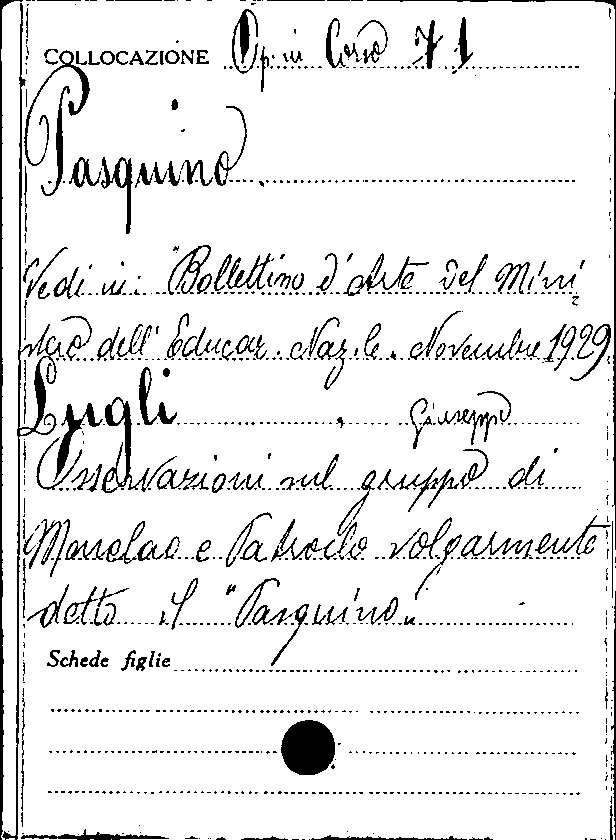 COLLOCAZIONE Op. in Corso 71
Pasquino.
Vedi in: "Bollettino d'Arte del Mini
stero dell' Educaz. Naz.le. Novembre 1929
Lugli, Giuseppe
Osservazioni sul gruppo di
Menelao e Patroclo volgarmente
detto il "Pasquino"
Schede figlie